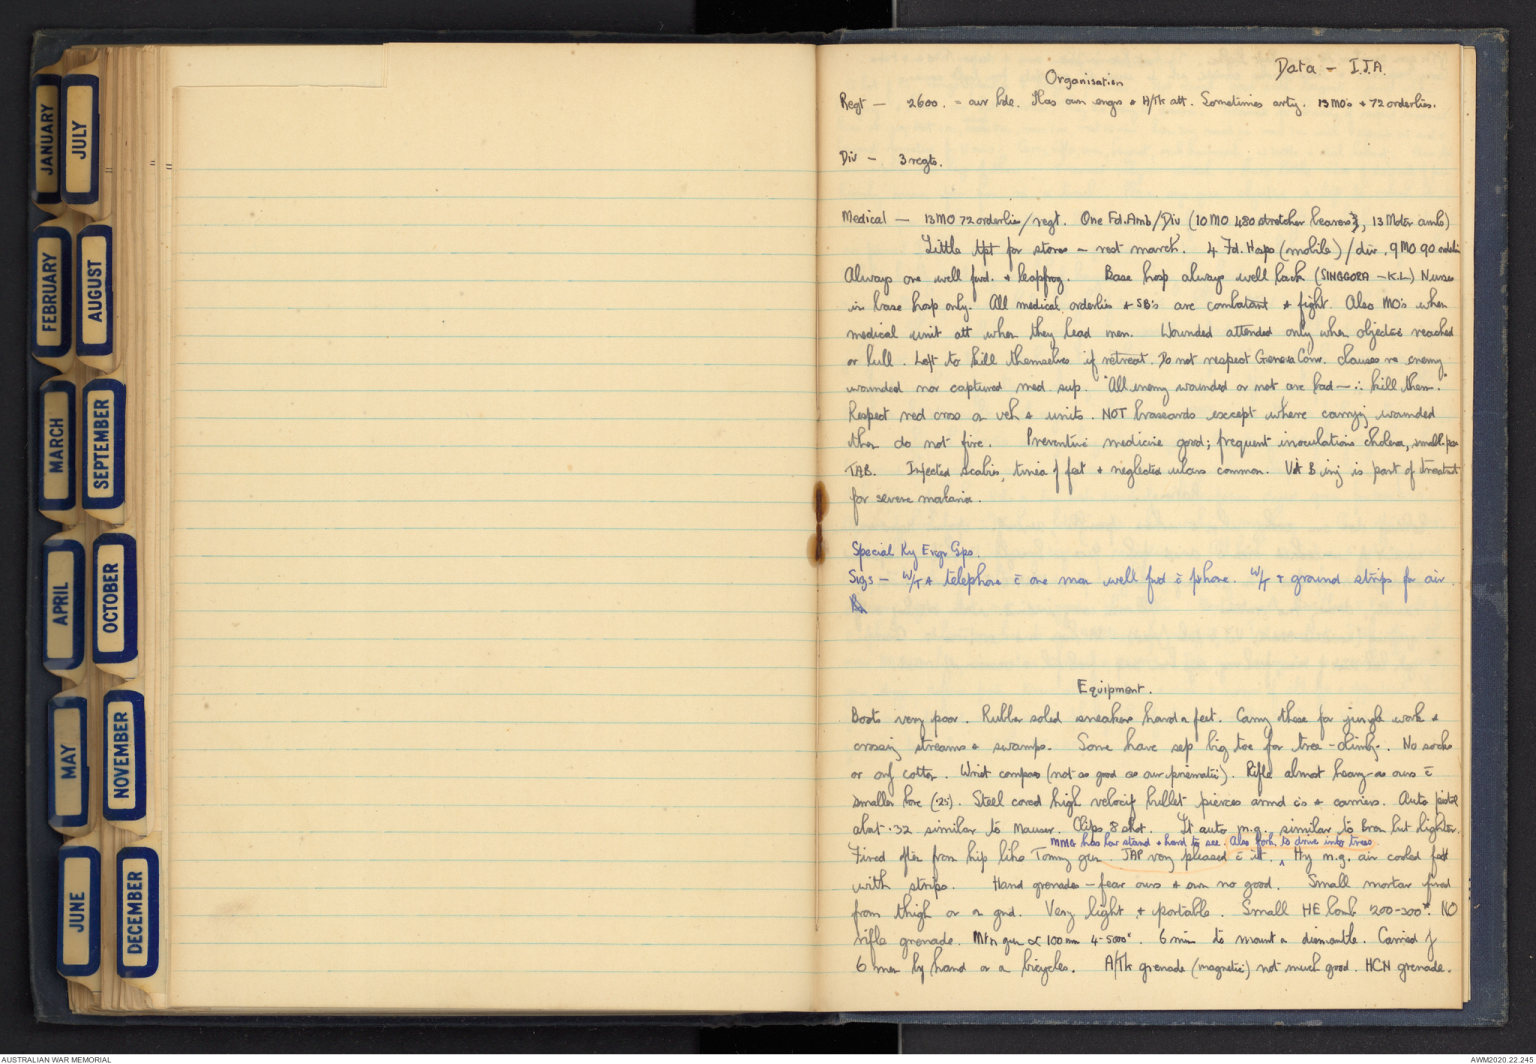 JANUARY
JULY
FEBRUARY
AUGUST
MARCH
SEPTEMBER
APRIL
OCTOBER
MAY
NOVEMBER
JUNE
DECEMBER
Data - I.J.A.
Organisation
Regt - 2600. = our bde. Has own engrs + A/Tk att. Sometimes arty. 13 MO's + 72 orderlies.
Div - 3 regts.
Medical - 13 MO 72 orderlies/regt. One Fd.Amb/Div (10 MO 480 stretcher bearers, 13 Motor ambs)
Little tpt for stores - rest march. 4 Fd. Hosps (mobile)/div. 9 MO 90
Always one well fwd. + leapfrog. Base hosp always well back (SINGGORA - K.L.) Nurses
in base hosp only. All medical orderlies + SB's are combatant + fight. Also MO's when
medical unit att when they lead men. Wounded attended only when objective reached
or lull. Left to kill themselves if retreat. Do not respect Geneva Conv. clauses re enemy
wounded nor captured med. sup. "All enemy wounded or not are bad - ∴ kill them."
Respect red cross on veh + units. NOT brassards except where carrying wounded
then do not fire. Preventive medicine good; frequent inoculations cholera, small-pox
TAB. Infected scabies, tinea of feet + neglected ulcers common. Vit B inj is part of treatment
for severe malaria.
Special Ry Engr Gps.
Sigs - W/T + telephone c̄ one man well fwd c̄ phone. W/T + ground strips for air.
Equipment.
Boots very poor. Rubber soled sneakers hard on feet. Carry these for jungle work +
crossing streams + swamps. Some have sep big toe for tree-climbg. No socks
or only cotton. Wrist compass (not as good as our prismatic). Rifle almost heavy as ours c̄
smaller bore (.25). Steel cored high velocity bullet pierces armd c's + carriers. Auto pistol
abat .32 similar to Mauser. Clips 8 shot. Lt auto m.g. similar to Bren but lighter.
MMG has low stand + hard to see. Also fork to drive into trees
Fired often from hip like Tommy gun. JAP very pleased c̄ it. ^ Hy m.g. air cooled fed
with strips. Hand grenades - fear ours + own no good. Small mortar fired
from thigh or on gnd. Very light + portable. Small HE bomb 200-300ˣ. NO
rifle grenade. Mtn gun 100mm 4-5000ˣ. 6 min to mount or dismantle. Carried by
6 men by hand or on bicycles. A/Tk grenade (magnetic) not much good. HCN grenade.
AUSTRALIAN WAR MEMORIAL
AWM2020.22.245